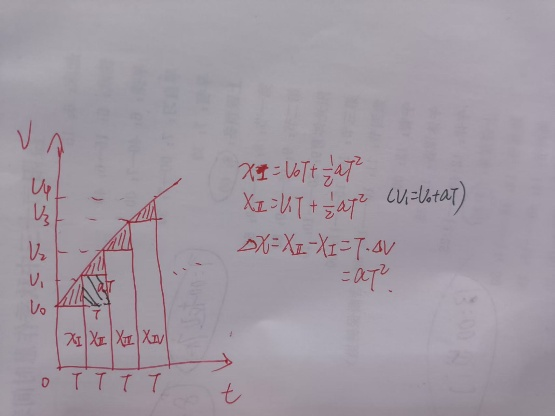 V
V₄
V₃
V₂
V₁
V₀
aT
T
xⅠ xⅡ xⅢ xⅣ
0 T T T T t
xⅠ=V₀T+½aT²
xⅡ=V₁T+½aT² (V₁=V₀+aT)
Δx=xⅡ-xⅠ=T·ΔV
=aT².
...